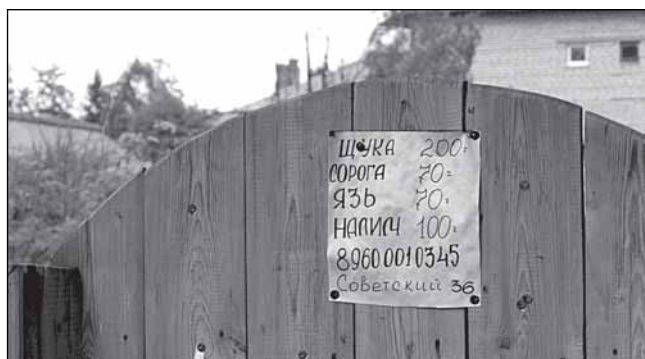 ЩУКА 200=
СОРОГА 70=
ЯЗЬ 70=
НАЛИМ 100=
89600010345
Советский 36